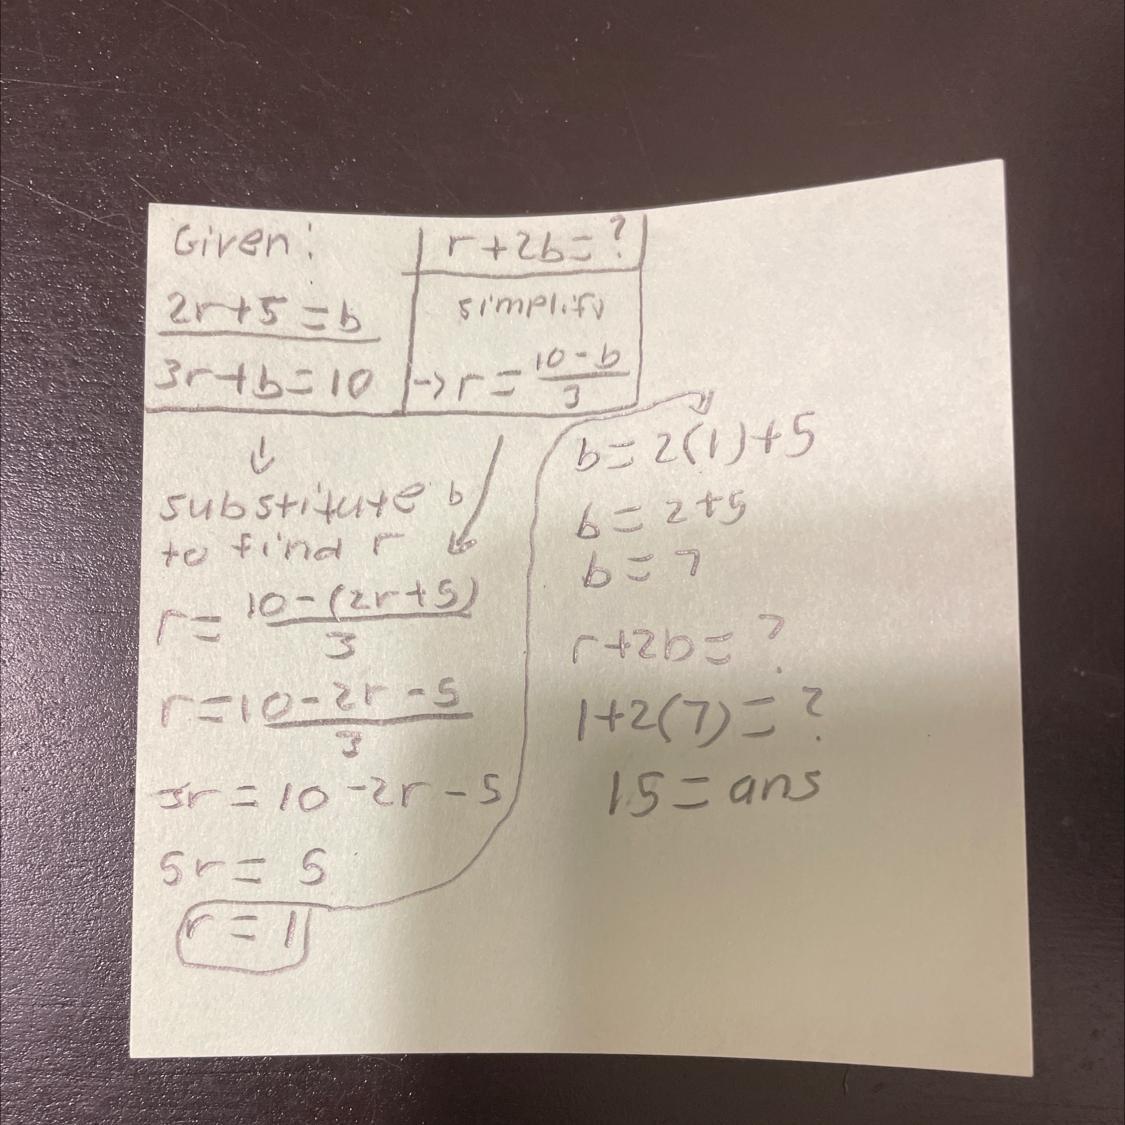 Given:
2r+5=b
3r+b=10
r+2b=?
simplify
→r=10-b/3
↓
substitute b
to find r
r=10-(2r+5)/3
r=10-2r-5/3
3r=10-2r-5
5r=5
r=1
b=2(1)+5
b=2+5
b=7
r+2b=?
1+2(7)=?
15=ans